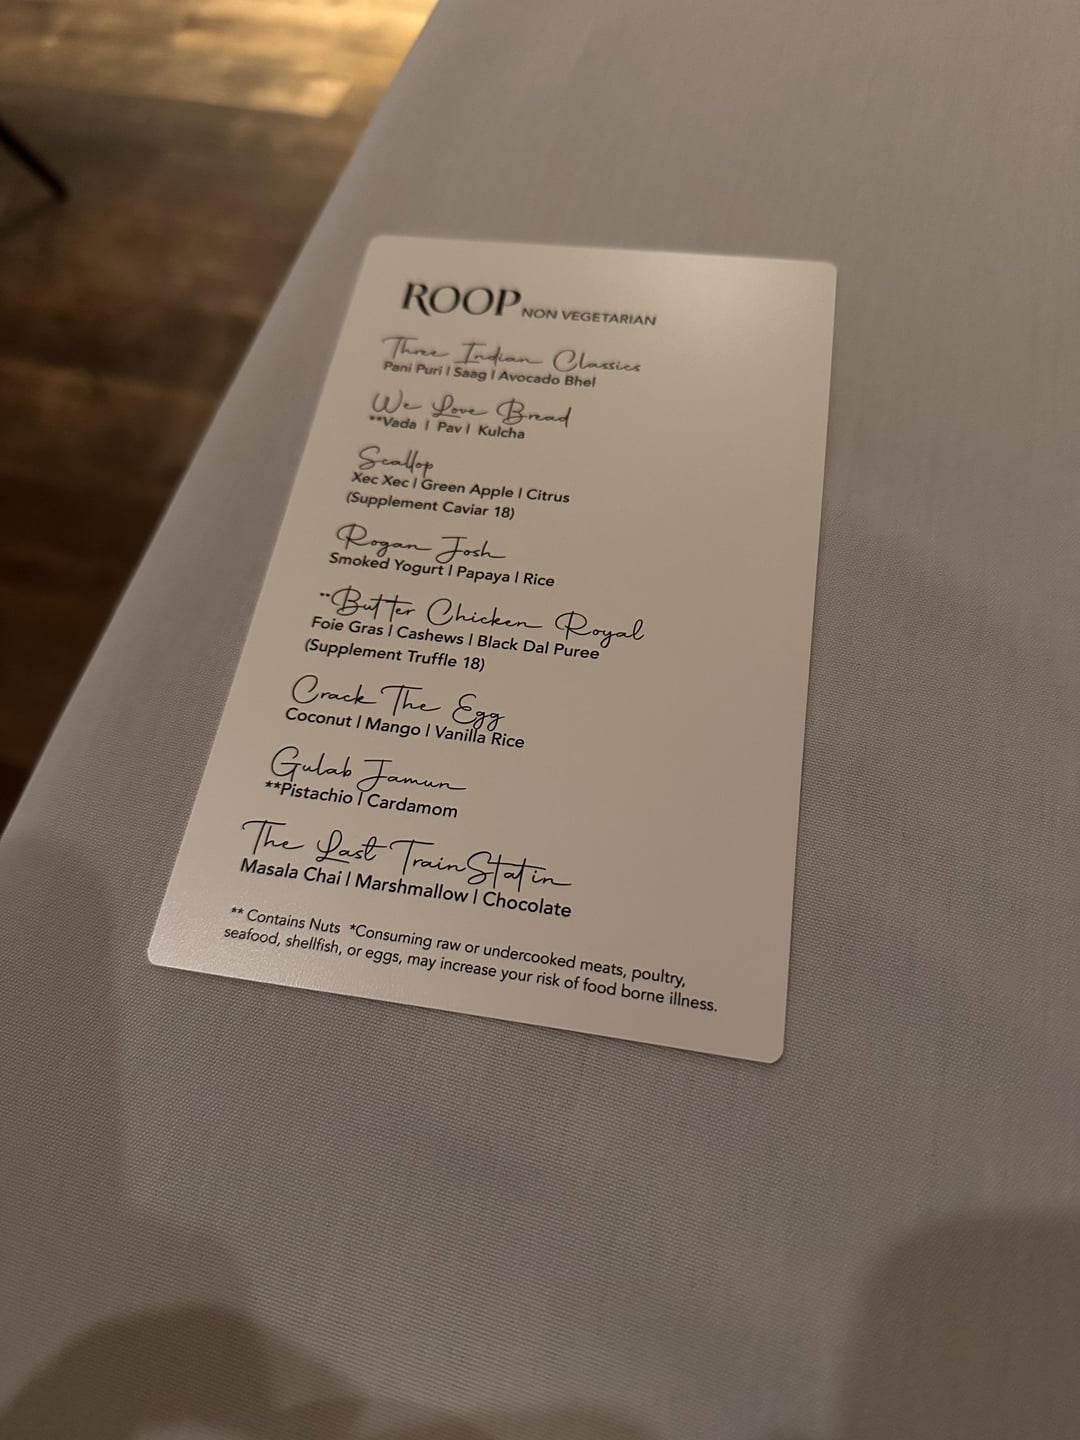 ROOP NON VEGETARIAN
Three Indian Classics
Pani Puri | Saag | Avocado Bhel
We Love Bread
**Vada | Pav | Kulcha
Scallop
Xec Xec | Green Apple | Citrus
(Supplement Caviar 18)
Rogan Josh
Smoked Yogurt | Papaya | Rice
**Butter Chicken Royal
Foie Gras | Cashews | Black Dal Puree
(Supplement Truffle 18)
Crack The Egg
Coconut | Mango | Vanilla Rice
Gulab Jamun
**Pistachio | Cardamom
The Last Train Statin
Masala Chai | Marshmallow | Chocolate
** Contains Nuts *Consuming raw or undercooked meats, poultry,
seafood, shellfish, or eggs, may increase your risk of food borne illness.